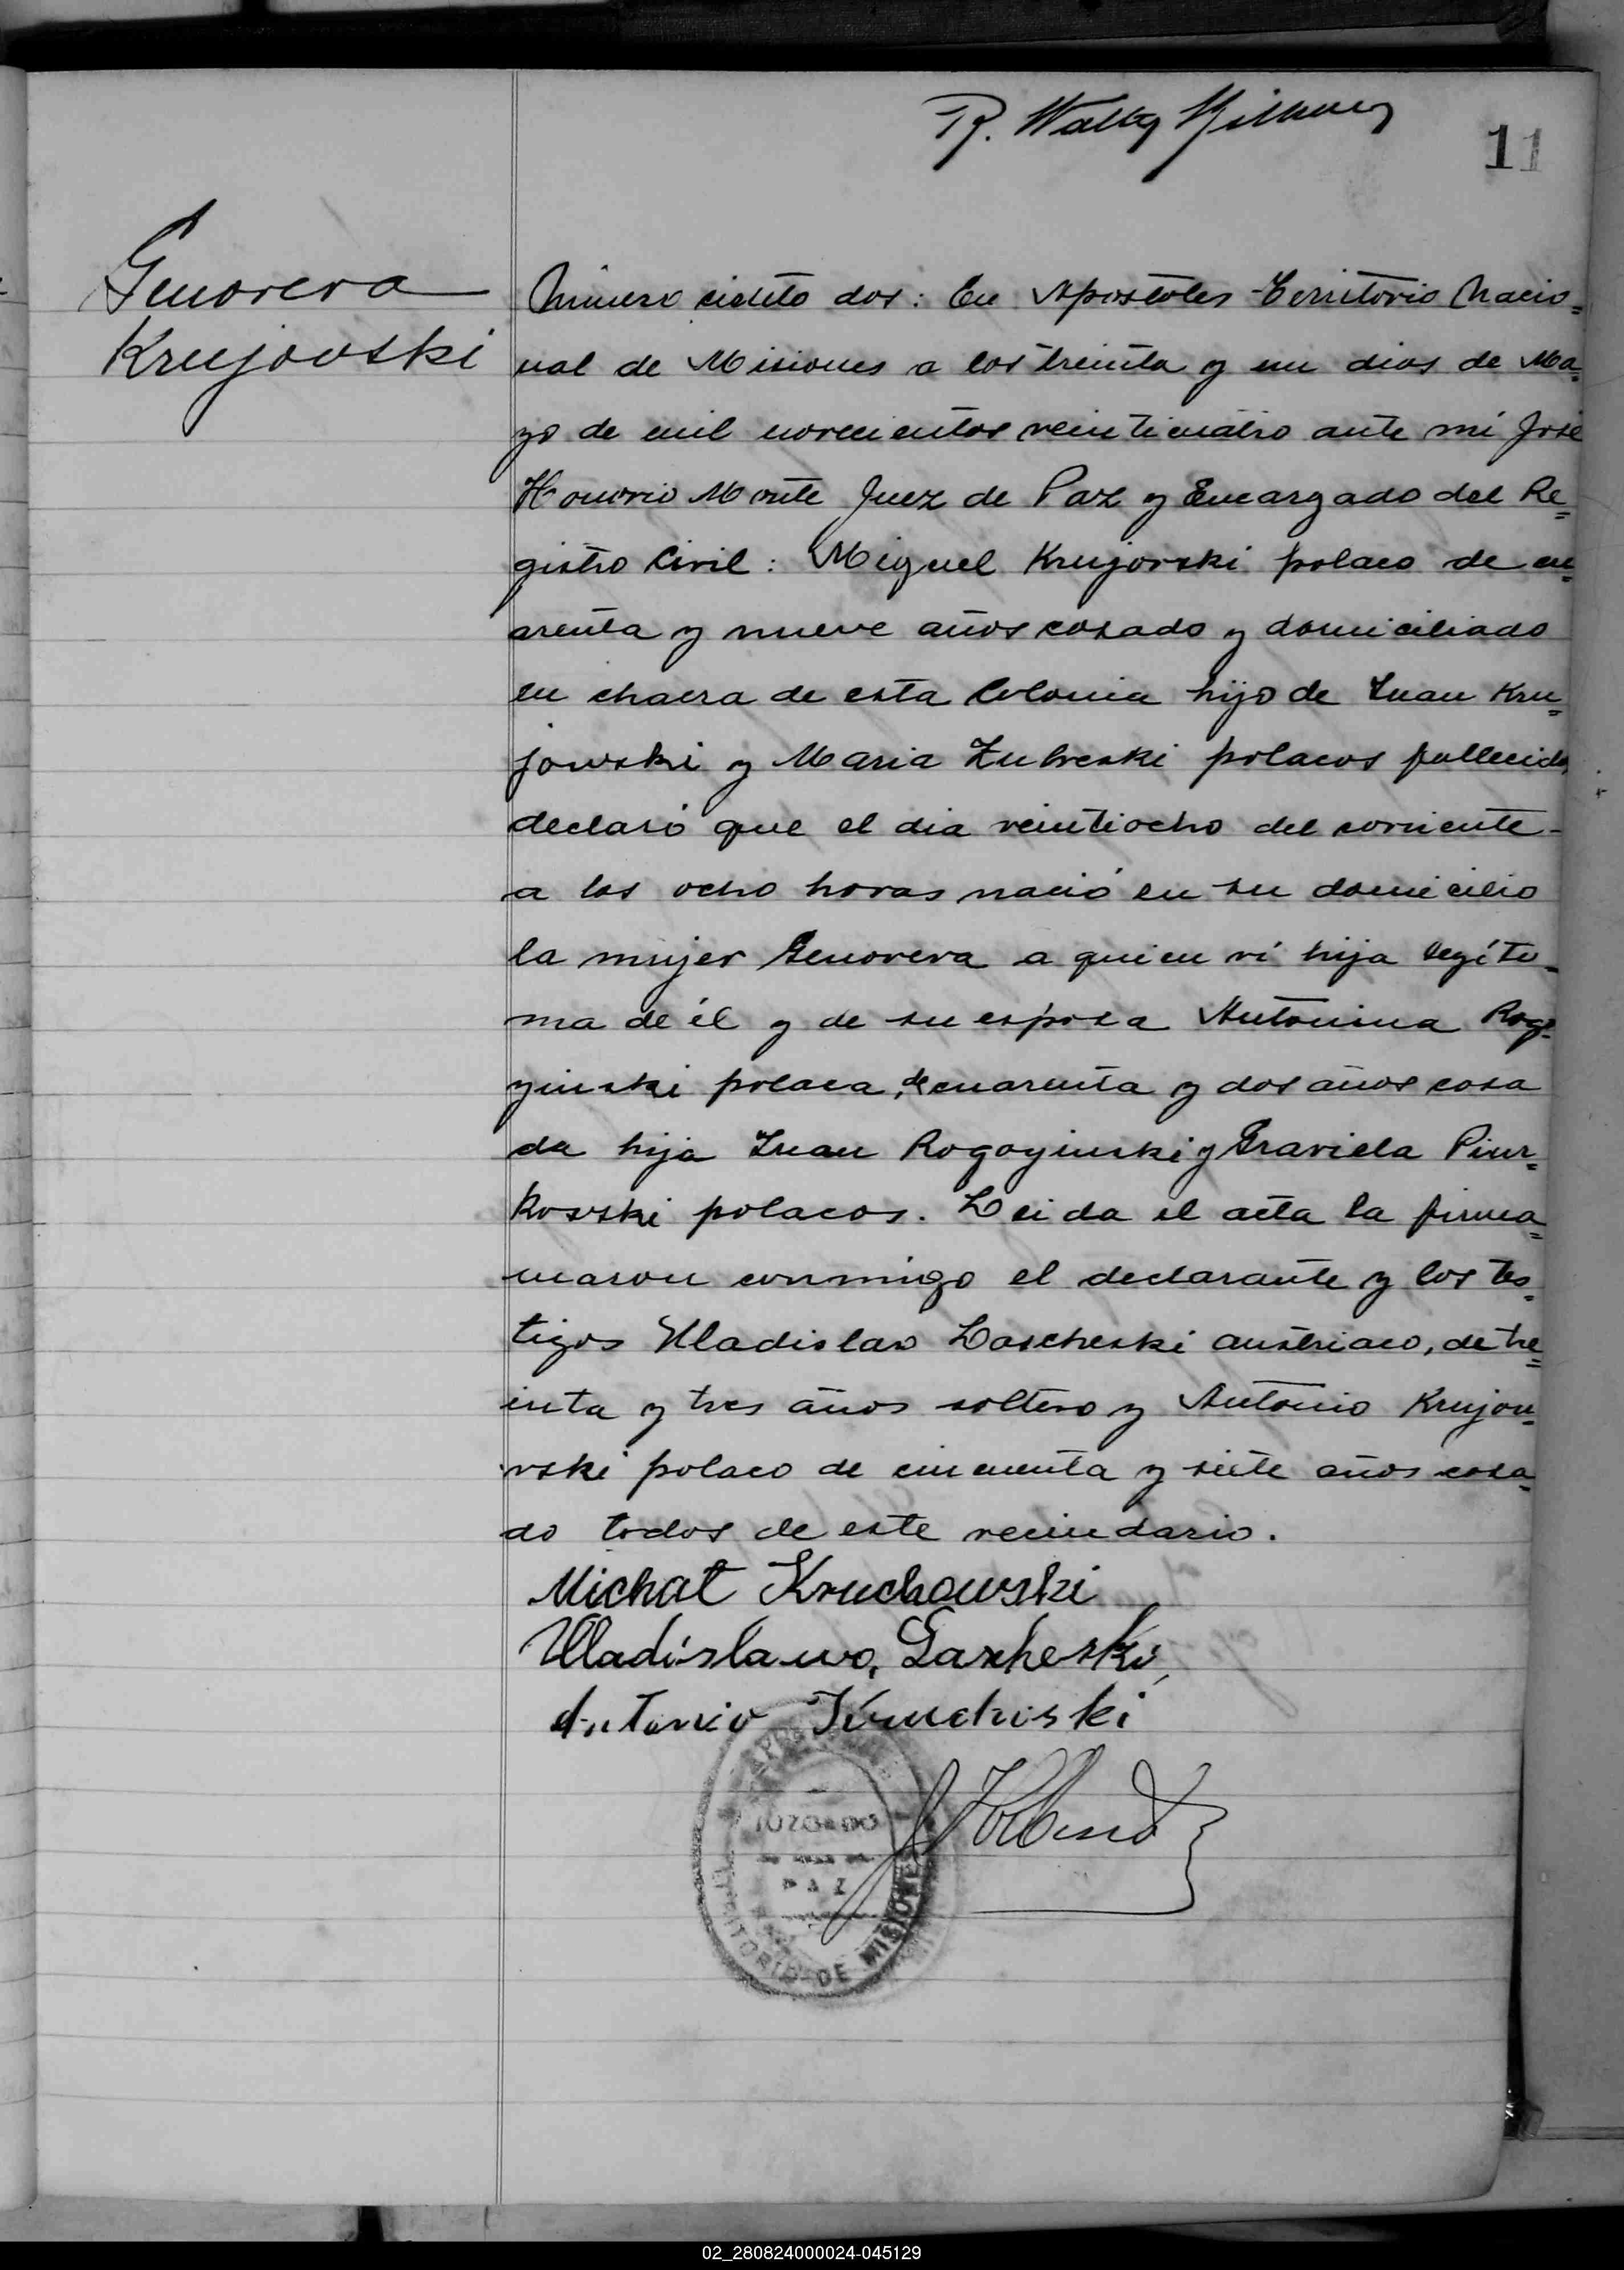 11
Genoveva
Krujovski
Número ciento dos: En Apostoles Territorio Nacio=
nal de Misiones a los treinta y un dias de Ma=
yo de mil novecientos veinticuatro ante mi José
Honorio Monte Juez de Paz y Encargado del Re=
gistro Civil: Miguel Krujovski polaco de cu=
arenta y nueve años casado y domiciliado
en chacra de esta Colonia hijo de Juan Kru=
jowski y Maria Zubreski polacos fallecidos
declaró que el dia veintiocho del corriente-
a las ocho horas nació en su domicilio
la mujer Genoveva a quien vi hija legíti=
ma de él y de su esposa Antonina Rogo=
yinski polaca, de cuarenta y dos años casa
da hija Juan Rogoyinski y Graviela Piur=
kovski polacos. Leida el acta la firma=
maron conmigo el declarante y los tes=
tigos Uladislao Lascheski austriaco, de tre=
inta y tres años soltero y Antonio Krujou=
vski polaco de cincuenta y siete años casa=
do todos de este vecindario.
Michał Kruchowski
Uladislawo, Lascheski,
Antonio Kruchiski
JUZGADO
PAZ
TERRITORIO DE MISIONES
02_280824000024-045129